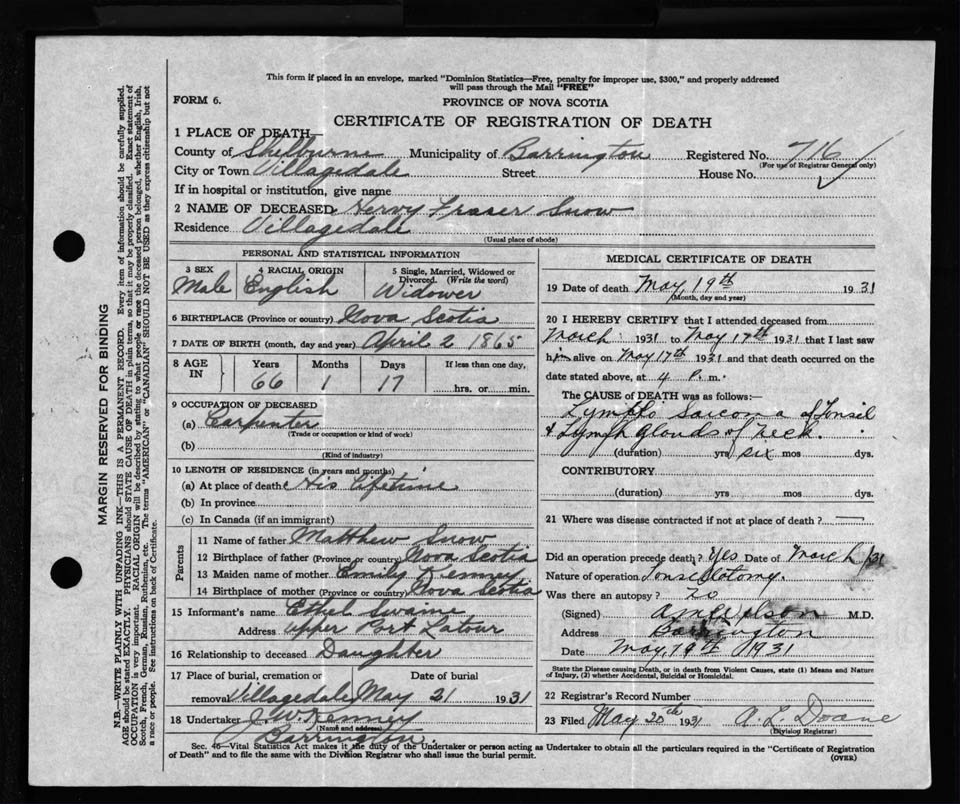 This form if placed in an envelope, marked "Dominion Statistics—Free, penalty for improper use, $300," and properly addressed
will pass through the Mail "FREE"
FORM 6.
PROVINCE OF NOVA SCOTIA
CERTIFICATE OF REGISTRATION OF DEATH
1 PLACE OF DEATH—
County of Shelburne Municipality of Barrington Registered No. 716
(For use of Registrar General only)
City or Town Villagedale Street House No.
If in hospital or institution, give name
2 NAME OF DECEASED Hervy Fraser Snow
Residence Villagedale
(Usual place of abode)
PERSONAL AND STATISTICAL INFORMATION
3 SEX Male
4 RACIAL ORIGIN English
5 Single, Married, Widowed or Divorced. (Write the word) Widower
6 BIRTHPLACE (Province or country) Nova Scotia
7 DATE OF BIRTH (month, day and year) April 2 1865
8 AGE IN Years Months Days If less than one day,
66 1 17 hrs. or min.
9 OCCUPATION OF DECEASED
(a) Carpenter
(Trade or occupation or kind of work)
(b)
(Kind of industry)
10 LENGTH OF RESIDENCE (in years and months)
(a) At place of death His Lifetime
(b) In province
(c) In Canada (if an immigrant)
Parents
11 Name of father Matthew Snow
12 Birthplace of father (Province or country) Nova Scotia
13 Maiden name of mother Emily Kenney
14 Birthplace of mother (Province or country) Nova Scotia
15 Informant's name Ethel Swaine
Address Upper Port Latour
16 Relationship to deceased Daughter
17 Place of burial, cremation or Date of burial
removal Villagedale May 21 1931
18 Undertaker J. W. Kenney
(Name and address)
Barrington.
MEDICAL CERTIFICATE OF DEATH
19 Date of death May, 19th 1931
(Month, day and year)
20 I HEREBY CERTIFY that I attended deceased from
March 1931 to May 19th 1931 that I last saw
him alive on May 17th 1931 and that death occurred on the
date stated above, at 4 P. m.
The CAUSE of DEATH was as follows:
Lympho Sarcoma of Tonsil
& Lymph Glands of neck.
(duration) yrs. six mos. dys.
CONTRIBUTORY
(duration) yrs. mos. dys.
21 Where was disease contracted if not at place of death?
Did an operation precede death? Yes Date of March /31
Nature of operation Tonsilotomy.
Was there an autopsy? No
(Signed) M.D.
Address Barrington
Date May, 19th 1931
State the Disease causing Death, or in death from Violent Causes, state (1) Means and Nature
of Injury, (2) whether Accidental, Suicidal or Homicidal.
22 Registrar's Record Number
23 Filed May 20th 1931 A. L. Doane
(Division Registrar)
Sec. 46—Vital Statistics Act makes it the duty of the Undertaker or person acting as Undertaker to obtain all the particulars required in the "Certificate of Registration
of Death" and to file the same with the Division Registrar who shall issue the burial permit.
(OVER)
MARGIN RESERVED FOR BINDING
N.B.—WRITE PLAINLY WITH UNFADING INK—THIS IS A PERMANENT RECORD. Every item of information should be carefully supplied.
AGE should be stated EXACTLY. PHYSICIANS should STATE CAUSE OF DEATH in plain terms, so that it may be properly classified. Exact statement of
OCCUPATION is very important. RACIAL ORIGIN will be described by stating to what people or race the deceased person belonged, whether English, Irish,
Scotch, French, German, Russian, Ruthenian, etc. The terms "AMERICAN" or "CANADIAN" SHOULD NOT BE USED as they express citizenship but not
a race or people. See instructions on back of Certificate.